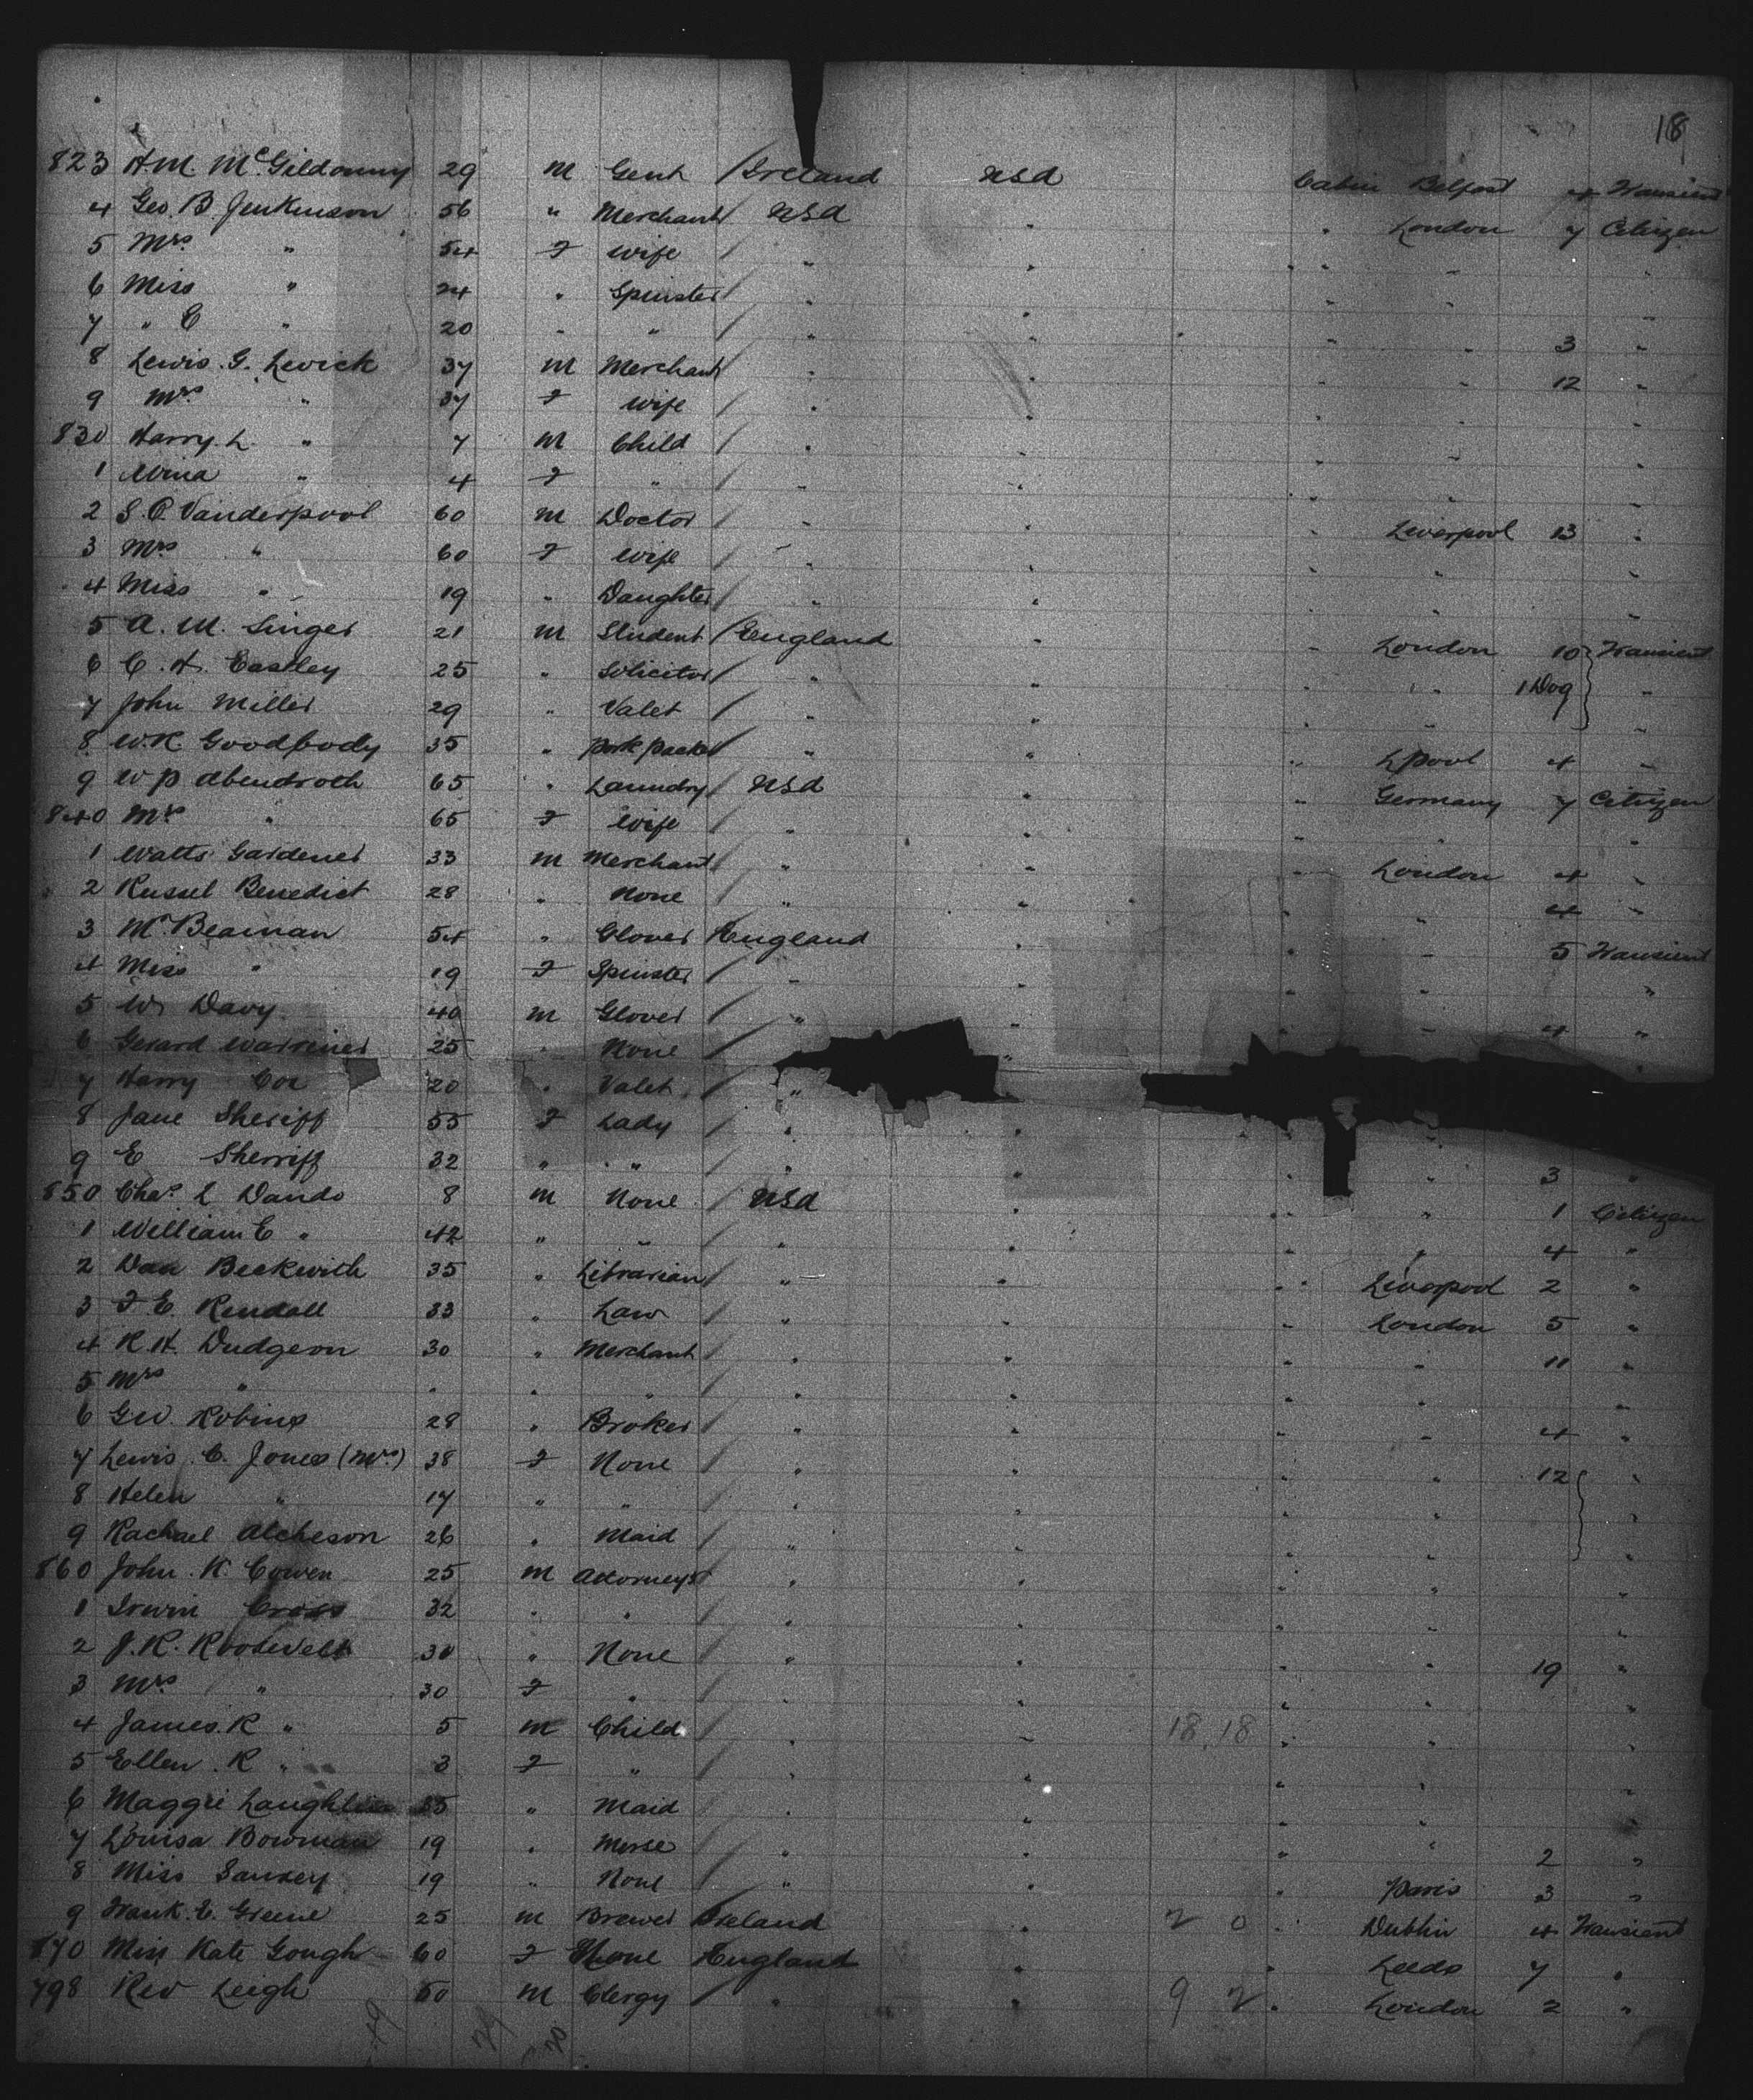 18
823 H.M. McGildowny 29 M Gent / Ireland USA Cabin Belfast 4 Transient
4 Geo. B. Jenkinson 56 " Merchant / USA " " London 7 Citizen
5 Mrs " 54 F Wife / " " " " " "
6 Miss " 24 " Spinster / " " " " "
7 " C " 20 " " / " " " " 3 "
8 Lewis. G. Levick 37 M Merchant / " " " " 12 "
9 Mrs " 37 F Wife / " " " "
830 Harry. L. " 7 M Child / " " " " "
1 " 4 F " / " " " " "
2 S.O. Vanderpool 60 M Doctor / " " " Liverpool 13 "
3 Mrs " 60 F Wife / " " " " "
4 Miss " 19 " Daughter / " " " " "
5 A. M. Singer 21 M Student / England " " London 10 } Transient
6 C. H. Eastley 25 " Solicitor / " " " " 1 Dog "
7 John Miller 29 " Valet / " " " " "
8 W.R. Goodbody 35 " Pork Packer / " " " Lpool 4 "
9 W P Abendroth 65 " Laundry / USA " " Germany 7 Citizen
840 Mrs " 65 F Wife / " " " " "
1 Watts Gardener 33 M Merchant / " " " London 4 "
2 Russel Benedict 28 " None / " " " " 4 "
3 Mr Beaman 54 " Glover / England " " " 5 Transient
4 Miss " 19 F Spinster / " " " " "
5 W. Davy 40 M Glover / " " " " 4 "
6 Gerard Warriner 25 " None / "
7 Harry Cox 20 " Valet / "
8 Jane Sheriff 55 F Lady / " "
9 E Sherriff 32 " " / " " " " 3 "
850 Chas. L Dando 8 M None / USA " " " 1 Citizen
1 William E " 42 " " / " " " " 4 "
2 Dan Beckwith 35 " Librarian / " " " Liverpool 2 "
3 F E. Kendall 33 " Law / " " " London 5 "
4 R.H. Dudgeon 30 " Merchant / " " " " 11 "
5 Mrs " " " " / " " " " "
6 Geo. Robins 28 " Broker / " " " " 4 "
7 Lewis. C. Jones (Mrs) 38 F None / " " " " 12 } "
8 Helen " 17 " " / " " " " "
9 Rachael Atcheson 26 " Maid / " " " " "
860 John. K. Cowen 25 M Attorneys / " " " " "
1 Irwin Cross 32 " " / " " " " "
2 J.R. Roosevelt 30 " None / " " " " 19 "
3 Mrs " 30 F " / " " " " "
4 James. R " 5 M Child / " " 18.18 " " "
5 Ellen. R " 3 F " / " " " " "
6 Maggie Laughlin 35 " Maid / " " " " "
7 Louisa Bowman 19 " / " " " " 2 "
8 Miss 19 " None / " " " Paris 3 "
9 Frank. E. Greene 25 M Brewer Ireland " 2 0 " Dublin 4 Transient
870 Miss Kate Gough 60 F None England " " Leeds 7 "
798 Rev Leigh 50 M Clergy / " " 9 2 " London 2 "